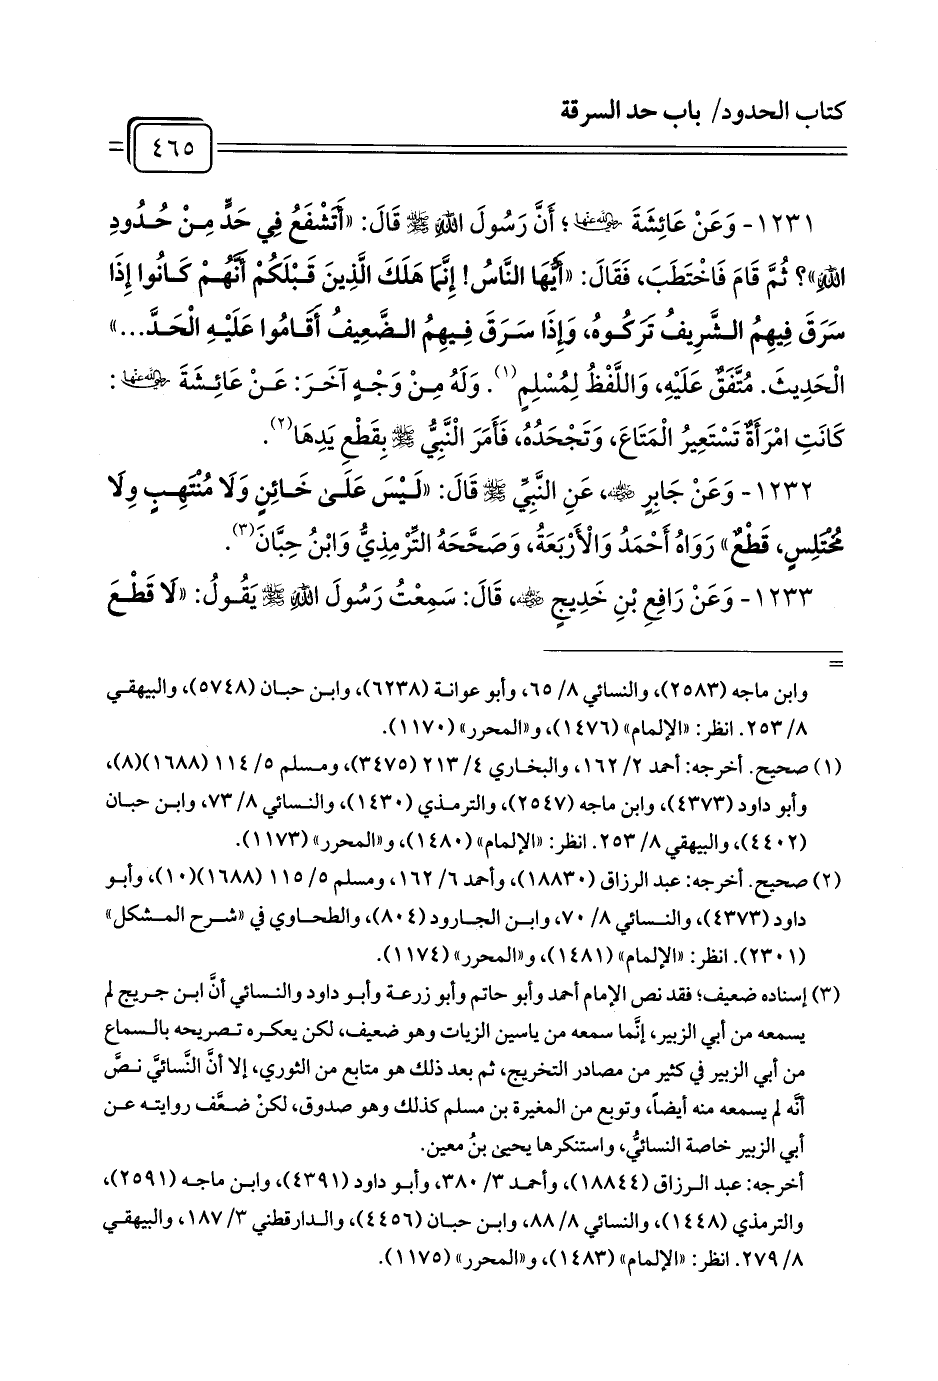 كتاب الحدود/ باب حد السرقة
٤٦٥ =
١٢٣١- وَعَنْ عَائِشَةَ رضي الله عنها؛ أَنَّ رَسُولَ اللهِ ﷺ قَالَ: «أَتَشْفَعُ فِي حَدٍّ مِنْ حُدُودِ
اللهِ»؟ ثُمَّ قَامَ فَاخْتَطَبَ، فَقَالَ: «أَيُّهَا النَّاسُ! إِنَّمَا هَلَكَ الَّذِينَ قَبْلَكُمْ أَنَّهُمْ كَانُوا إِذَا
سَرَقَ فِيهِمُ الشَّرِيفُ تَرَكُوهُ، وَإِذَا سَرَقَ فِيهِمُ الضَّعِيفُ أَقَامُوا عَلَيْهِ الْحَدَّ...»
الْحَدِيثَ. مُتَّفَقٌ عَلَيْهِ، وَاللَّفْظُ لِمُسْلِمٍ(١). وَلَهُ مِنْ وَجْهٍ آخَرَ: عَنْ عَائِشَةَ رضي الله عنها:
كَانَتِ امْرَأَةٌ تَسْتَعِيرُ الْمَتَاعَ، وَتَجْحَدُهُ، فَأَمَرَ النَّبِيُّ ﷺ بِقَطْعِ يَدِهَا(٢).
١٢٣٢- وَعَنْ جَابِرٍ رضي الله عنه، عَنِ النَّبِيِّ ﷺ قَالَ: «لَيْسَ عَلَى خَائِنٍ وَلَا مُنْتَهِبٍ وِلَا
مُخْتَلِسٍ، قَطْعٌ» رَوَاهُ أَحْمَدُ وَالْأَرْبَعَةُ، وَصَحَّحَهُ التِّرْمِذِيُّ وَابْنُ حِبَّانَ(٣).
١٢٣٣- وَعَنْ رَافِعِ بْنِ خَدِيجٍ رضي الله عنه، قَالَ: سَمِعْتُ رَسُولَ اللهِ ﷺ يَقُولُ: «لَا قَطْعَ
=
وابن ماجه (٢٥٨٣)، والنسائي ٨/ ٦٥، وأبو عوانة (٦٢٣٨)، وابن حبان (٥٧٤٨)، والبيهقي
٨/ ٢٥٣. انظر: «الإلمام» (١٤٧٦)، و«المحرر» (١١٧٠).
(١) صحيح. أخرجه: أحمد ٢/ ١٦٢، والبخاري ٤/ ٢١٣ (٣٤٧٥)، ومسلم ٥/ ١١٤ (١٦٨٨)(٨)،
وأبو داود (٤٣٧٣)، وابن ماجه (٢٥٤٧)، والترمذي (١٤٣٠)، والنسائي ٨/ ٧٣، وابن حبان
(٤٤٠٢)، والبيهقي ٨/ ٢٥٣. انظر: «الإلمام» (١٤٨٠)، و«المحرر» (١١٧٣).
(٢) صحيح. أخرجه: عبد الرزاق (١٨٨٣٠)، وأحمد ٦/ ١٦٢، ومسلم ٥/ ١١٥ (١٦٨٨)(١٠)، وأبو
داود (٤٣٧٣)، والنسائي ٨/ ٧٠، وابن الجارود (٨٠٤)، والطحاوي في «شرح المشكل»
(٢٣٠١). انظر: «الإلمام» (١٤٨١)، و«المحرر» (١١٧٤).
(٣) إسناده ضعيف؛ فقد نص الإمام أحمد وأبو حاتم وأبو زرعة وأبو داود والنسائي أنَّ ابن جريج لم
يسمعه من أبي الزبير، إنَّما سمعه من ياسين الزيات وهو ضعيف، لكن يعكره تصريحه بالسماع
من أبي الزبير في كثير من مصادر التخريج، ثم بعد ذلك هو متابع من الثوري، إلا أنَّ النَّسائيَّ نصَّ
أنَّه لم يسمعه منه أيضاً، وتوبع من المغيرة بن مسلم كذلك وهو صدوق، لكنْ ضعَّف روايته عن
أبي الزبير خاصة النسائيُّ، واستنكرها يحيى بنُ معين.
أخرجه: عبد الرزاق (١٨٨٤٤)، وأحمد ٣/ ٣٨٠، وأبو داود (٤٣٩١)، وابن ماجه (٢٥٩١)،
والترمذي (١٤٤٨)، والنسائي ٨/ ٨٨، وابن حبان (٤٤٥٦)، والدارقطني ٣/ ١٨٧، والبيهقي
٨/ ٢٧٩. انظر: «الإلمام» (١٤٨٣)، و«المحرر» (١١٧٥).